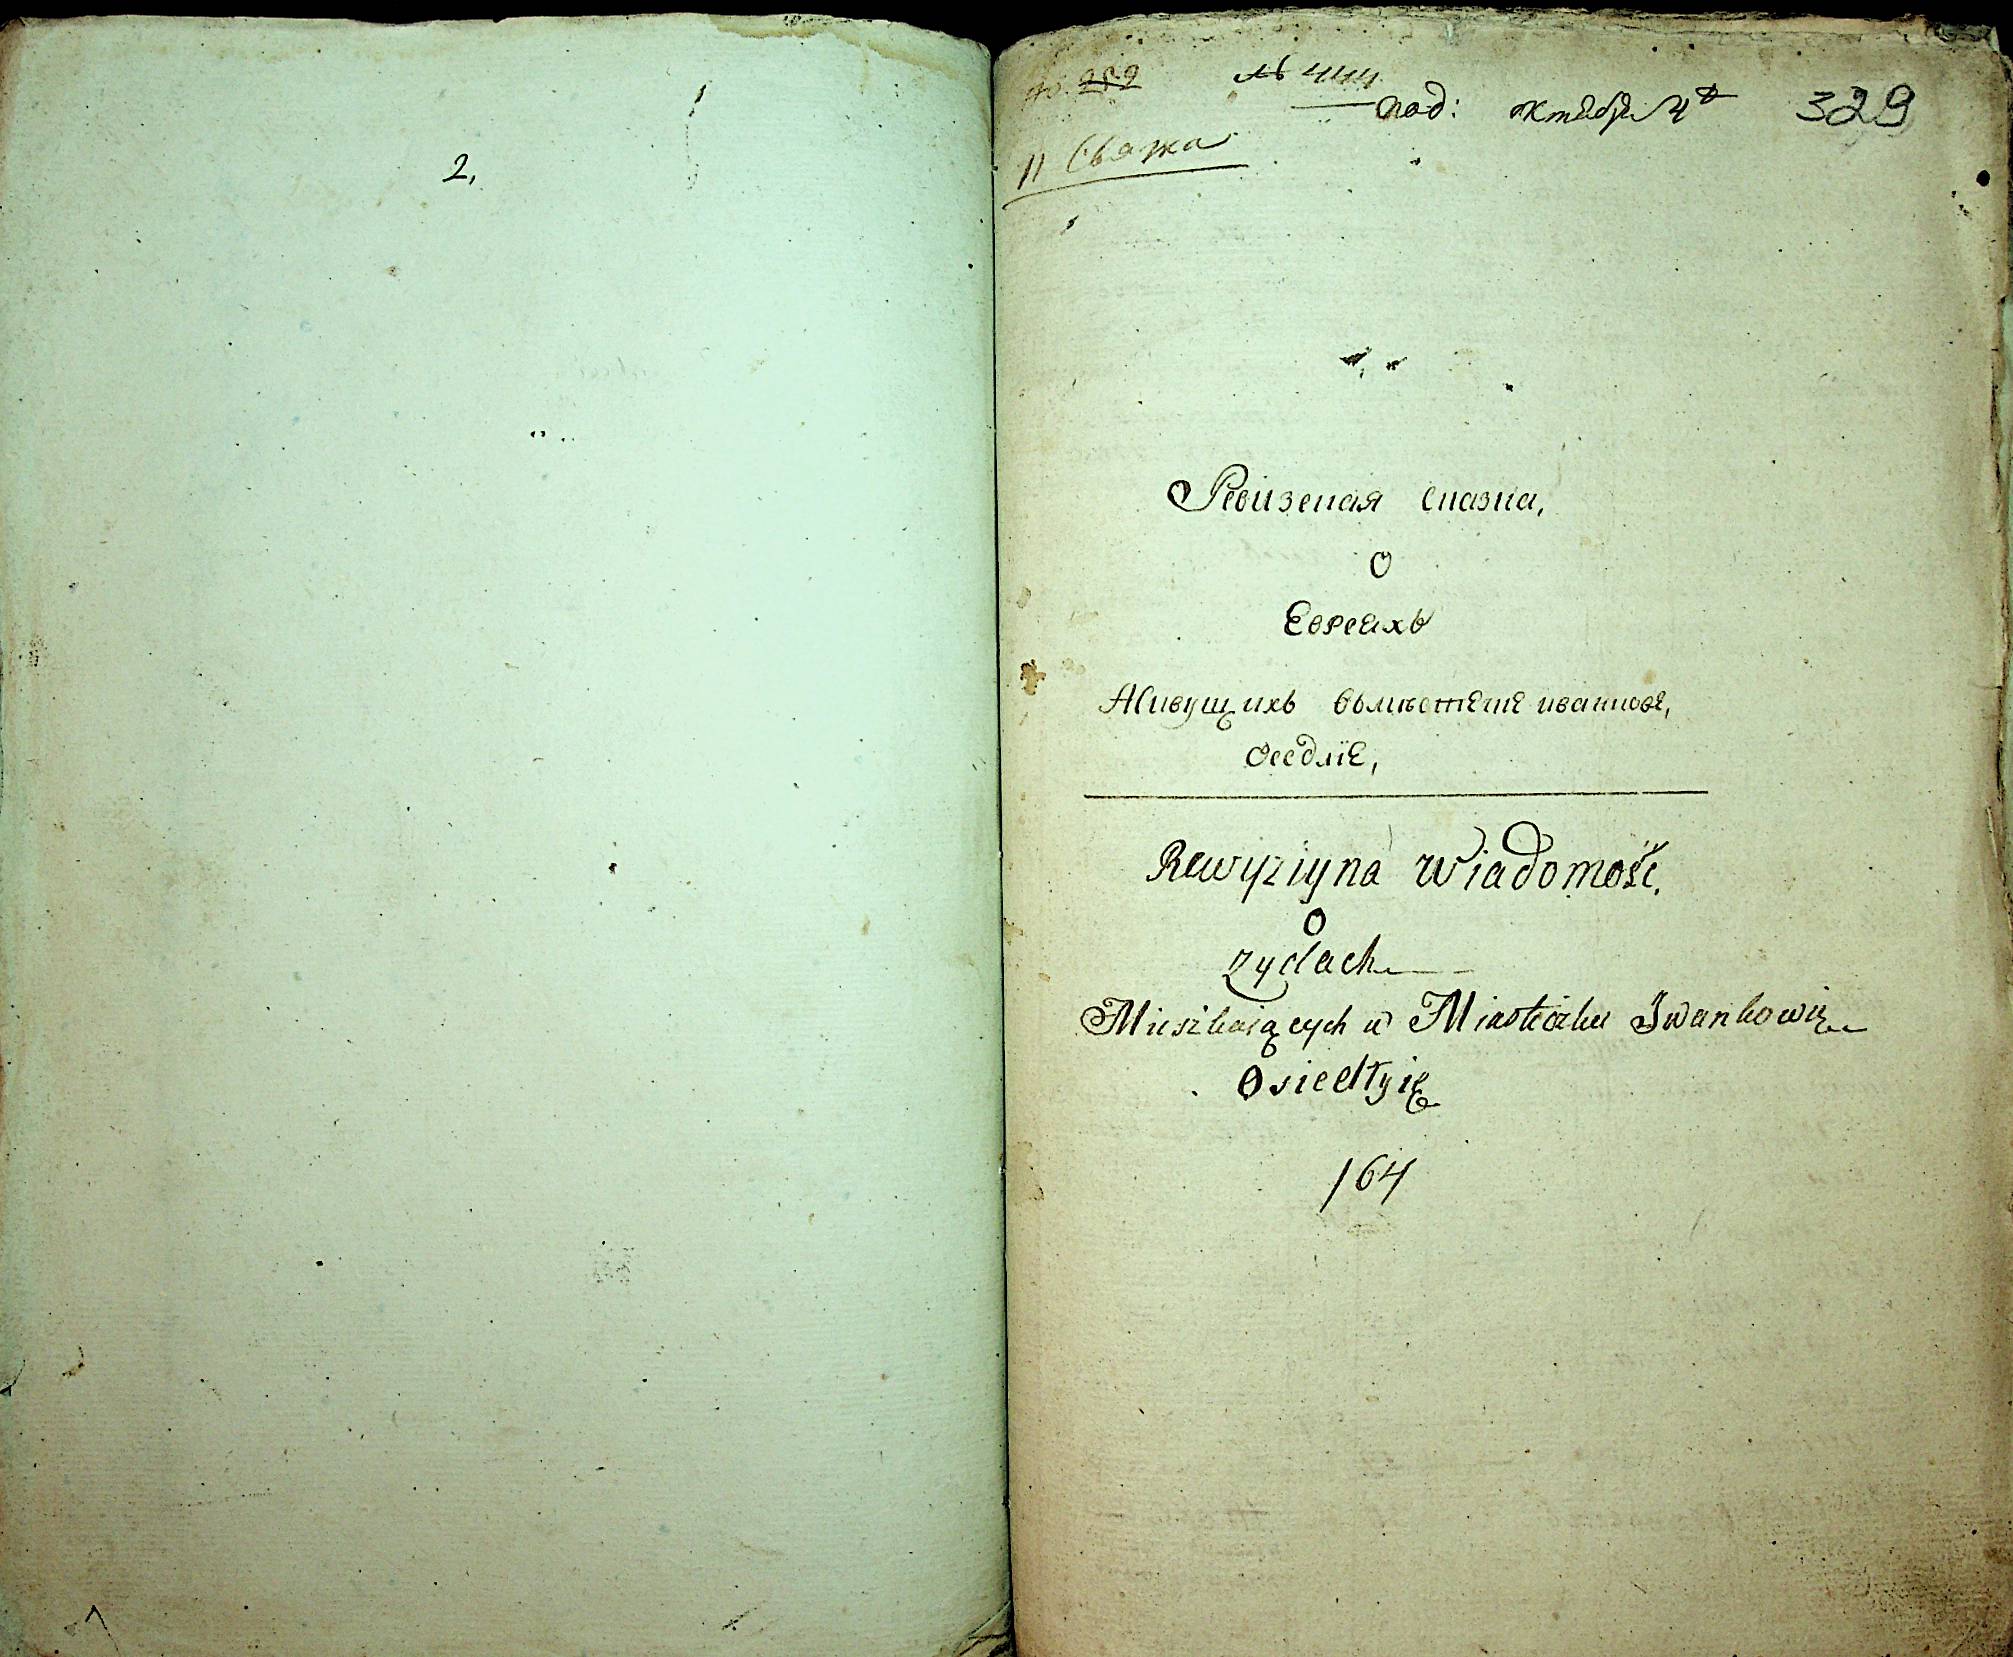 2,
№ 444
под: октября 4го 329
11 Связка
Ревизская сказка,
О
Евреахъ
Живущихъ вьмѣстечне иванкове,
Оседлiе,
Rewyziyna Wiadomość.
O
Zydach
Mieszkaiących w Miasteczku Iwankowie
Osiedłyię
164